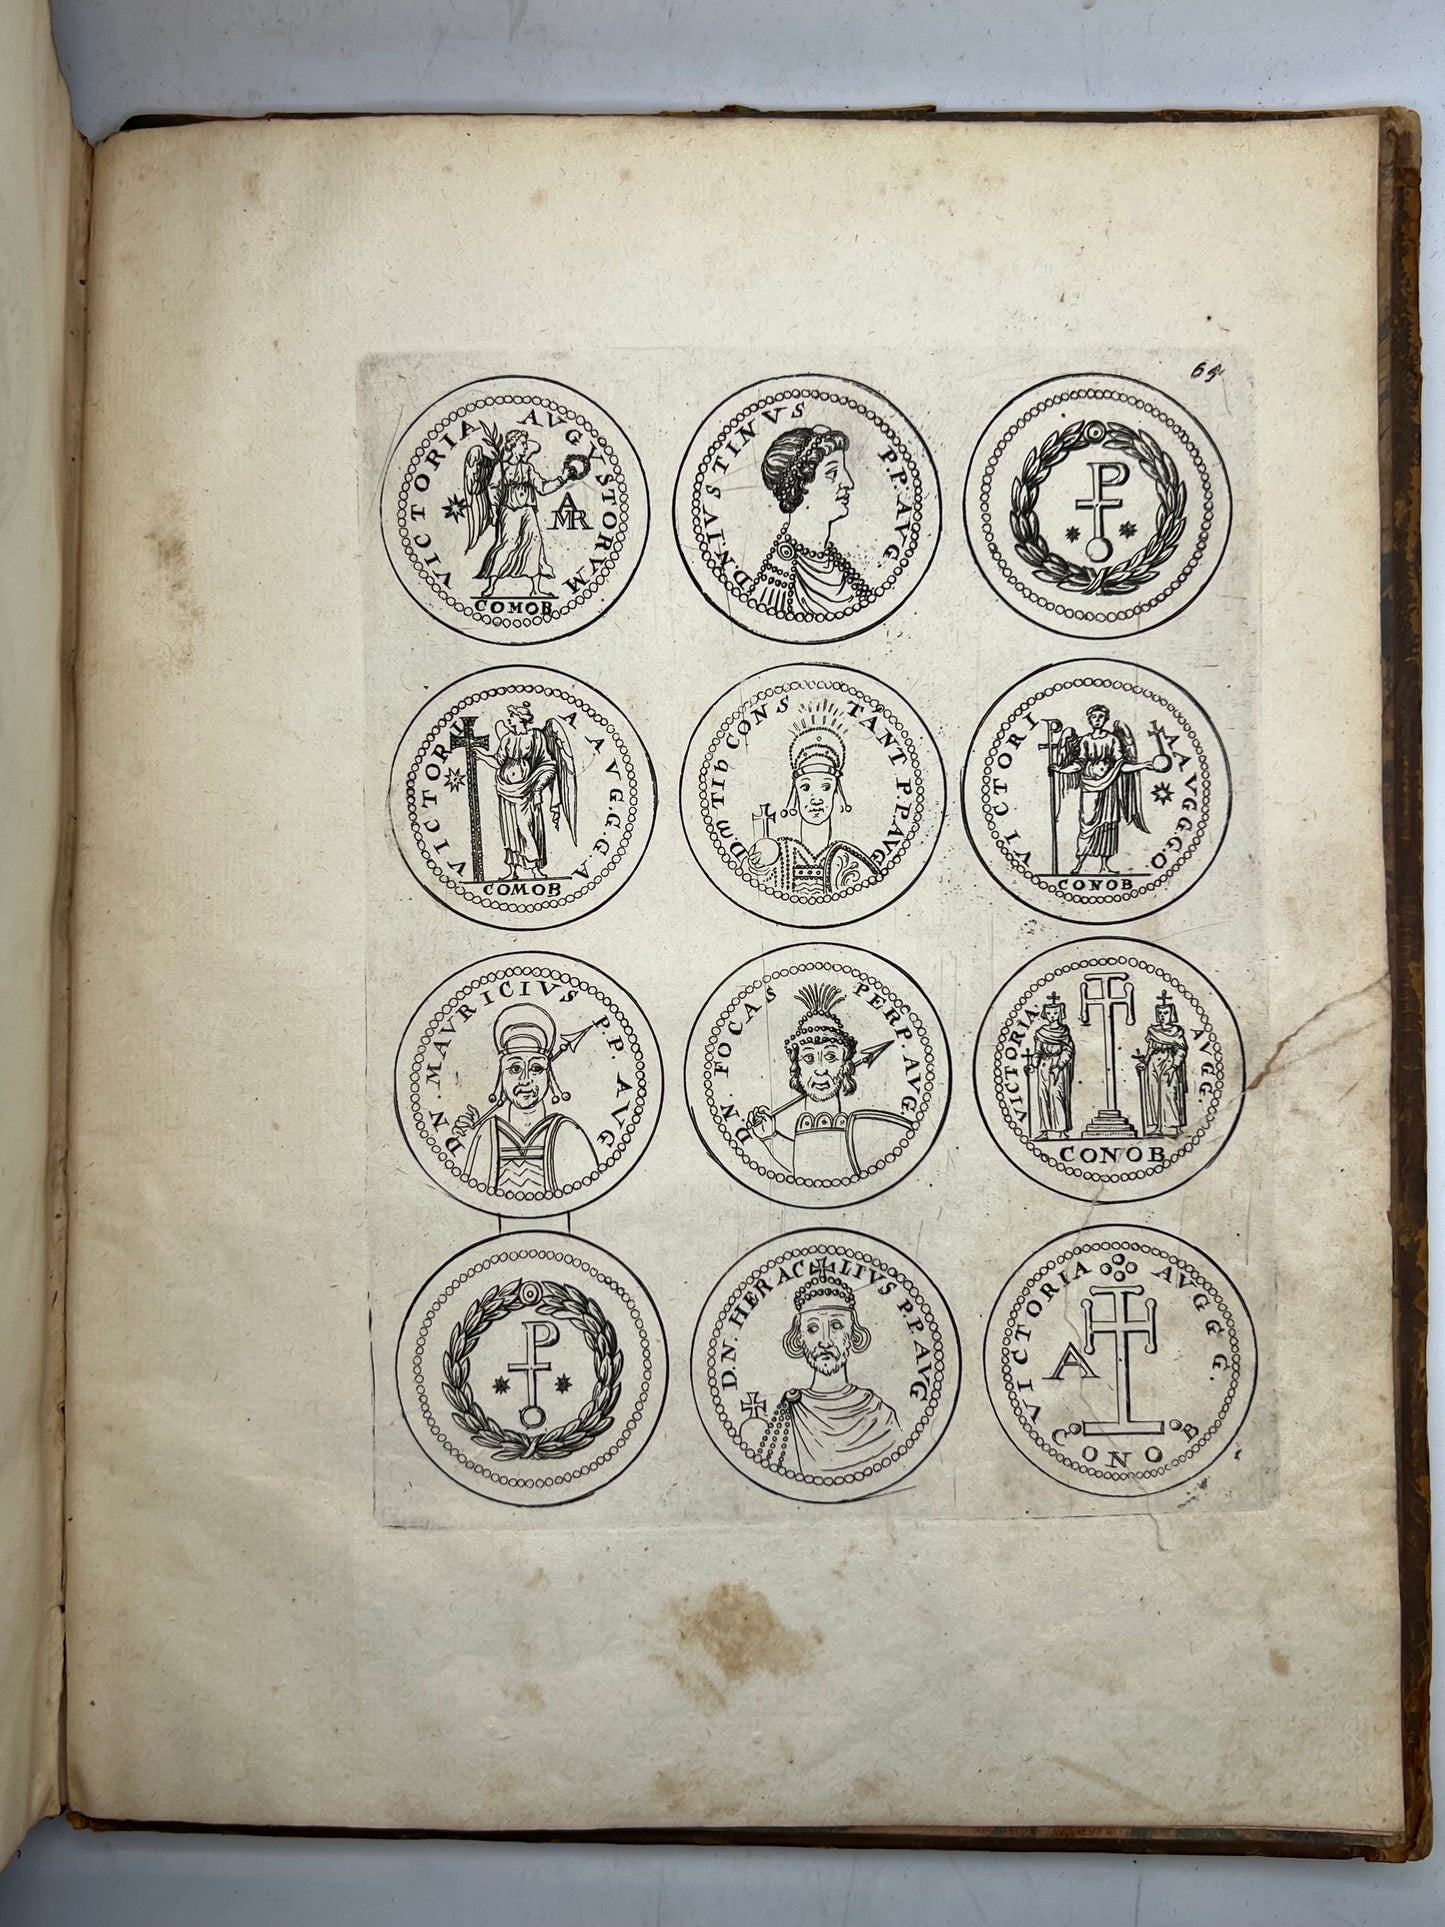 69.
VICTORIA AVGVSTORVM
A
MR
COMOB
D.N.IVSTINVS P.P. AVG
P
VICTORI AAVGGG.A
COMOB
D.m TIb CONSTANT P.P.AVG.
VICTORI AAVGG.O.
CONOB
D.N. MAVRICIVS P.P. AVG
D.N. FOCAS PERP. AVG.
VICTORIA. AVGG.
CONOB
P
D.N. HERACLIVS P.P. AVG
VICTORIA AVGGG.
A
CONOB